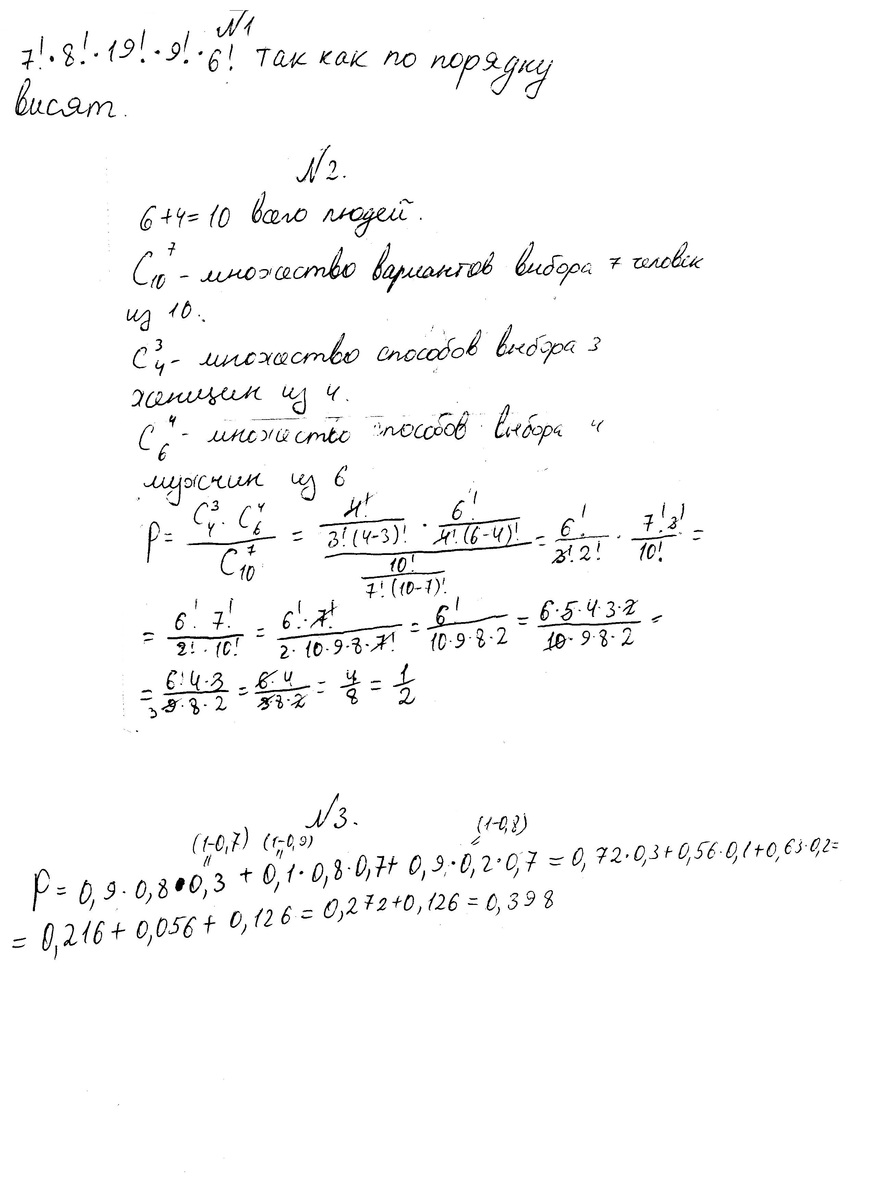 N1
7!·8!·19!·9!·6! так как по порядку
висят.
N2.
6+4=10 всего людей.
C₁₀⁷ - множество вариантов выбора 7 человек
из 10.
C₄³ - множество способов выбора 3
женщин из 4.
C₆⁴ - множество способов выбора 4
мужчин из 6
P = (C₄³ · C₆⁴) / C₁₀⁷ = (4!/(3!(4-3)!) · 6!/(4!(6-4)!)) / (10!/(7!(10-7)!)) = 6!/(3!2!) · 7!3!/10! =
= 6!7!/(2!·10!) = 6!·7!/(2·10·9·8·7!) = 6!/(10·9·8·2) = 6·5·4·3·2/(10·9·8·2) =
= 6!4·3/(9·8·2) = 6·4/(3·8·2) = 4/8 = 1/2
N3.
(1-0,7) (1-0,9) (1-0,8)
P = 0,9·0,8·0,3 + 0,1·0,8·0,7 + 0,9·0,2·0,7 = 0,72·0,3+0,56·0,1+0,63·0,2=
= 0,216 + 0,056 + 0,126 = 0,272+0,126 = 0,398